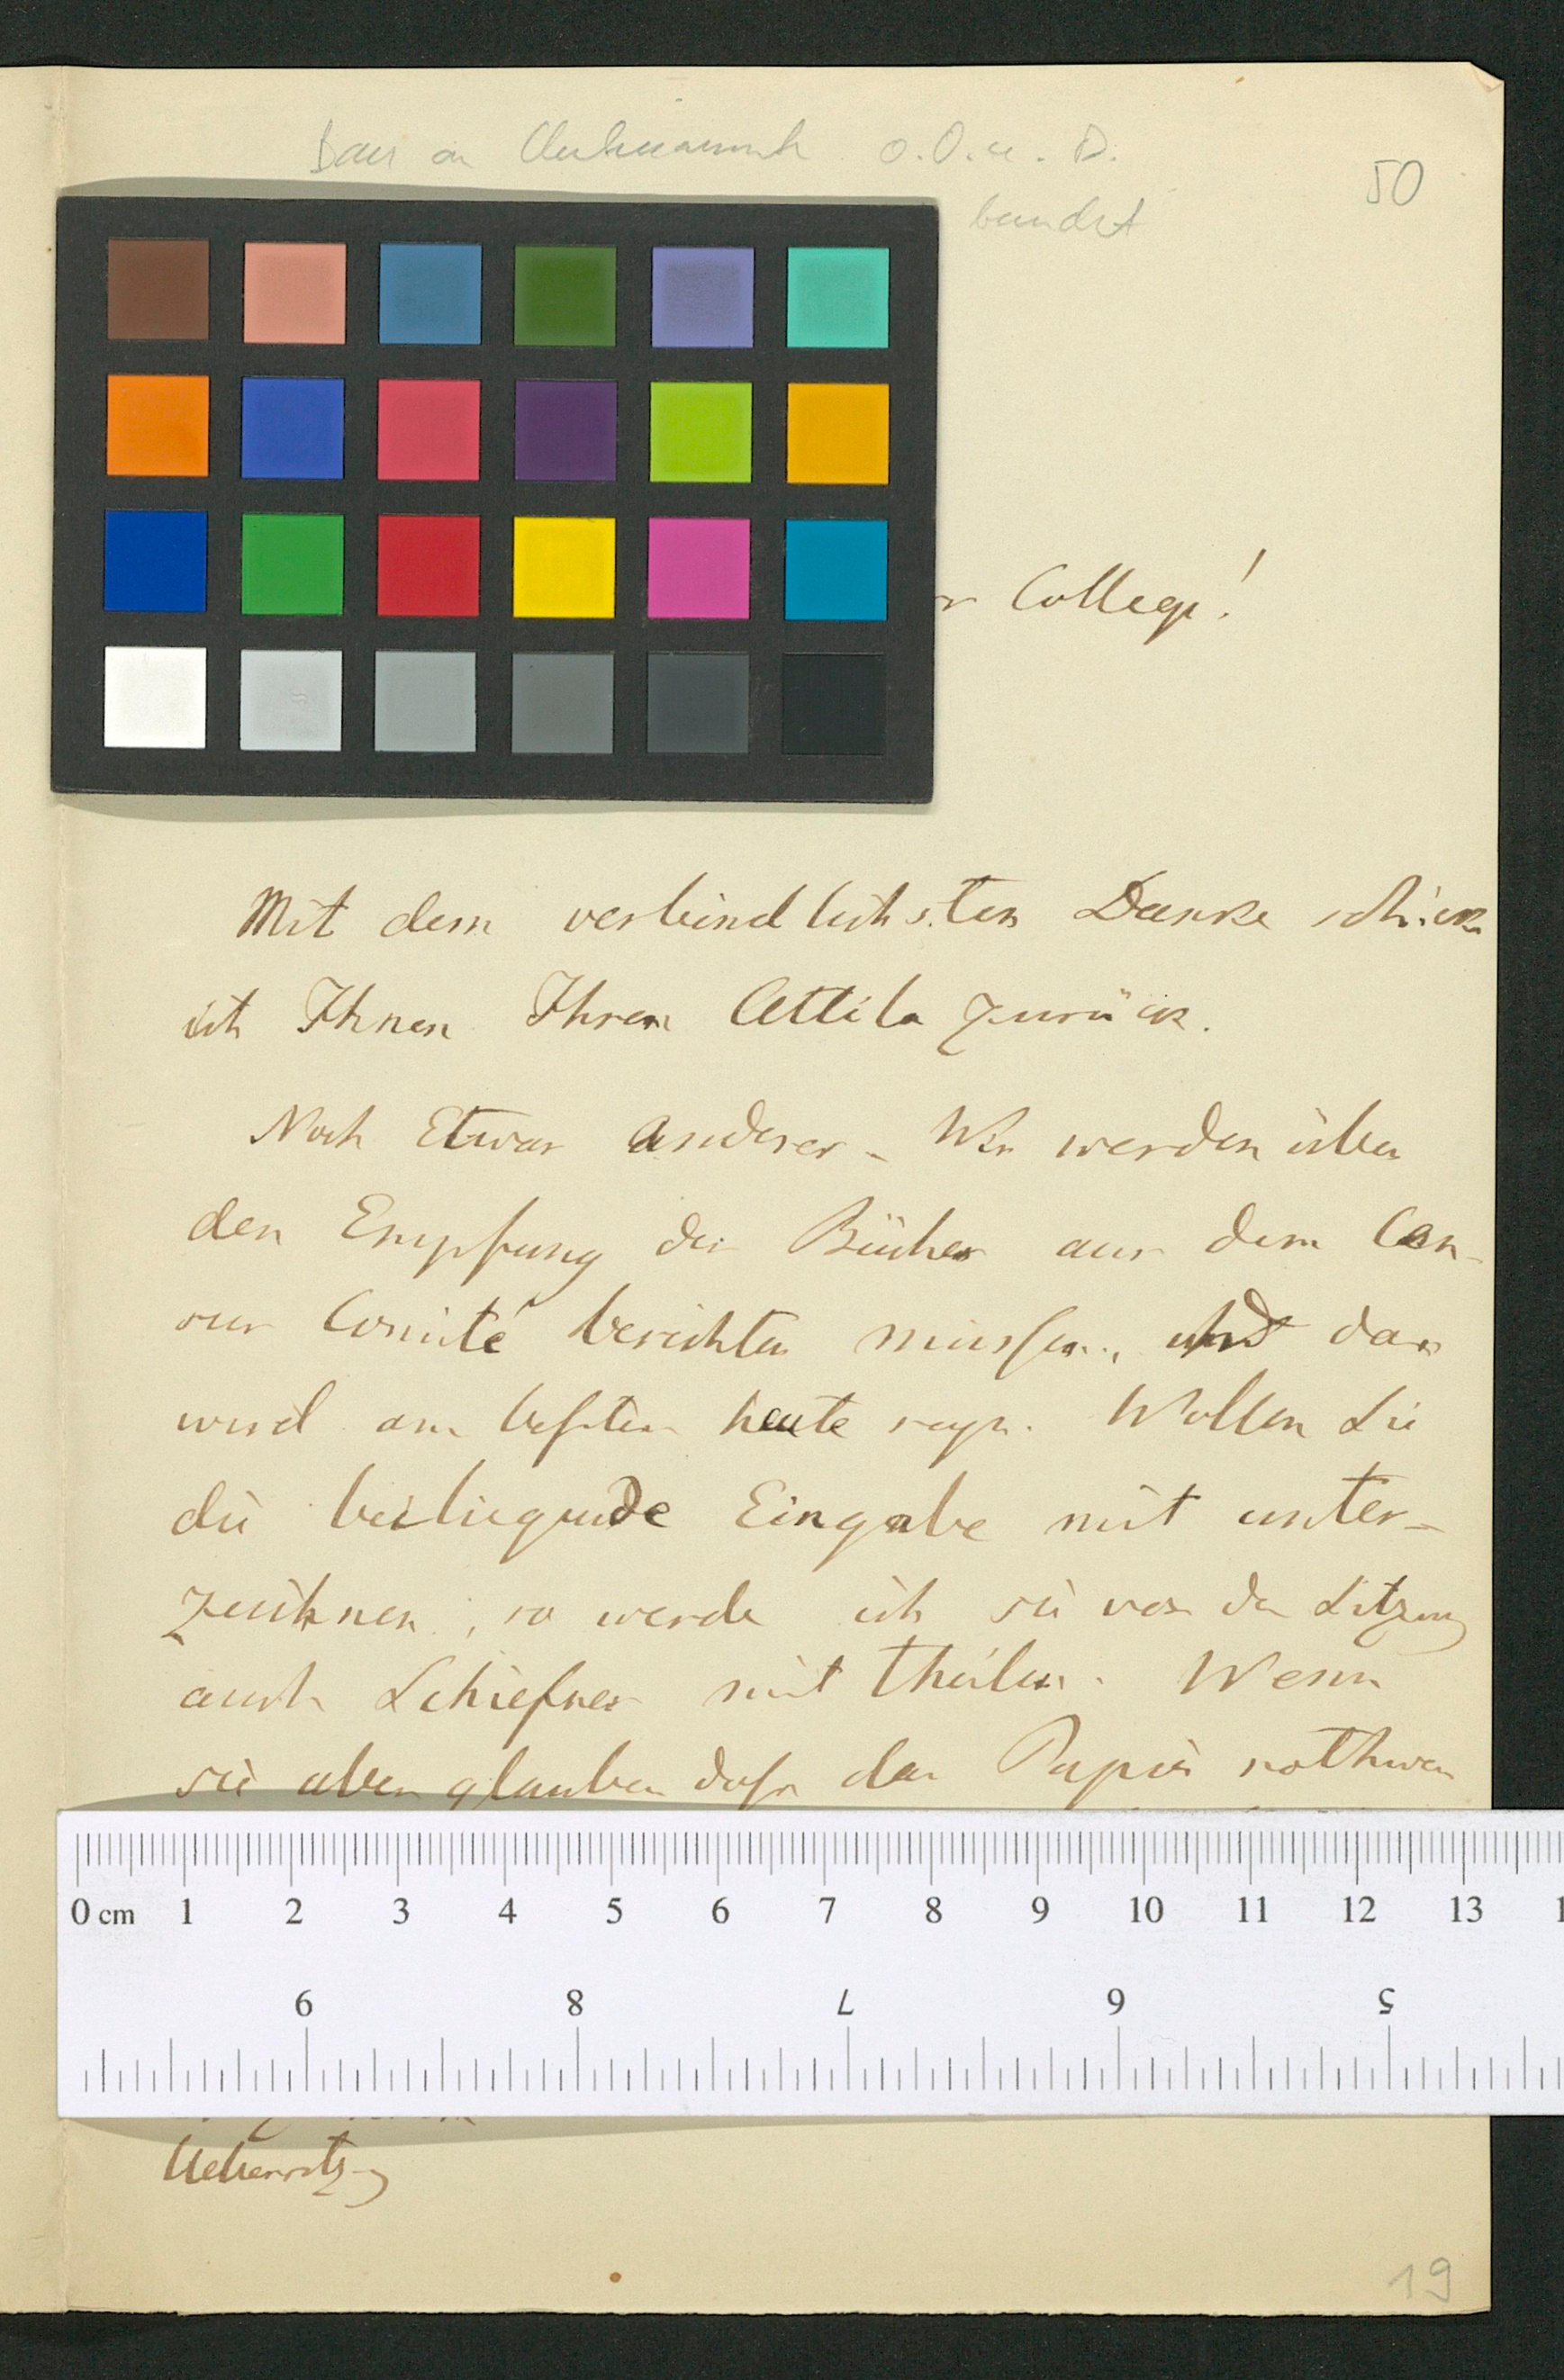 Baer an o. O. u. D.
50
College!
Mit dem verbindlichsten Danke schicke
ich Ihnen Ihren Attila zurück.
Noch Etwas anderes – Wir werden über
den Empfang der Bücher aus dem Cen-
sur Comité berichten müssen, und das
wird am besten heute seyn. Wollen Sie
die beiliegende Eingabe mit unter-
zeichnen, so werde ich sie vor der Sitzung
auch Schiefner mit theilen. Wenn
sie aber glauben dass das Papier nothwen
0 cm 1 2 3 4 5 6 7 8 9 10 11 12 13 1
9 8 7 6 5
Uebersetzung
19